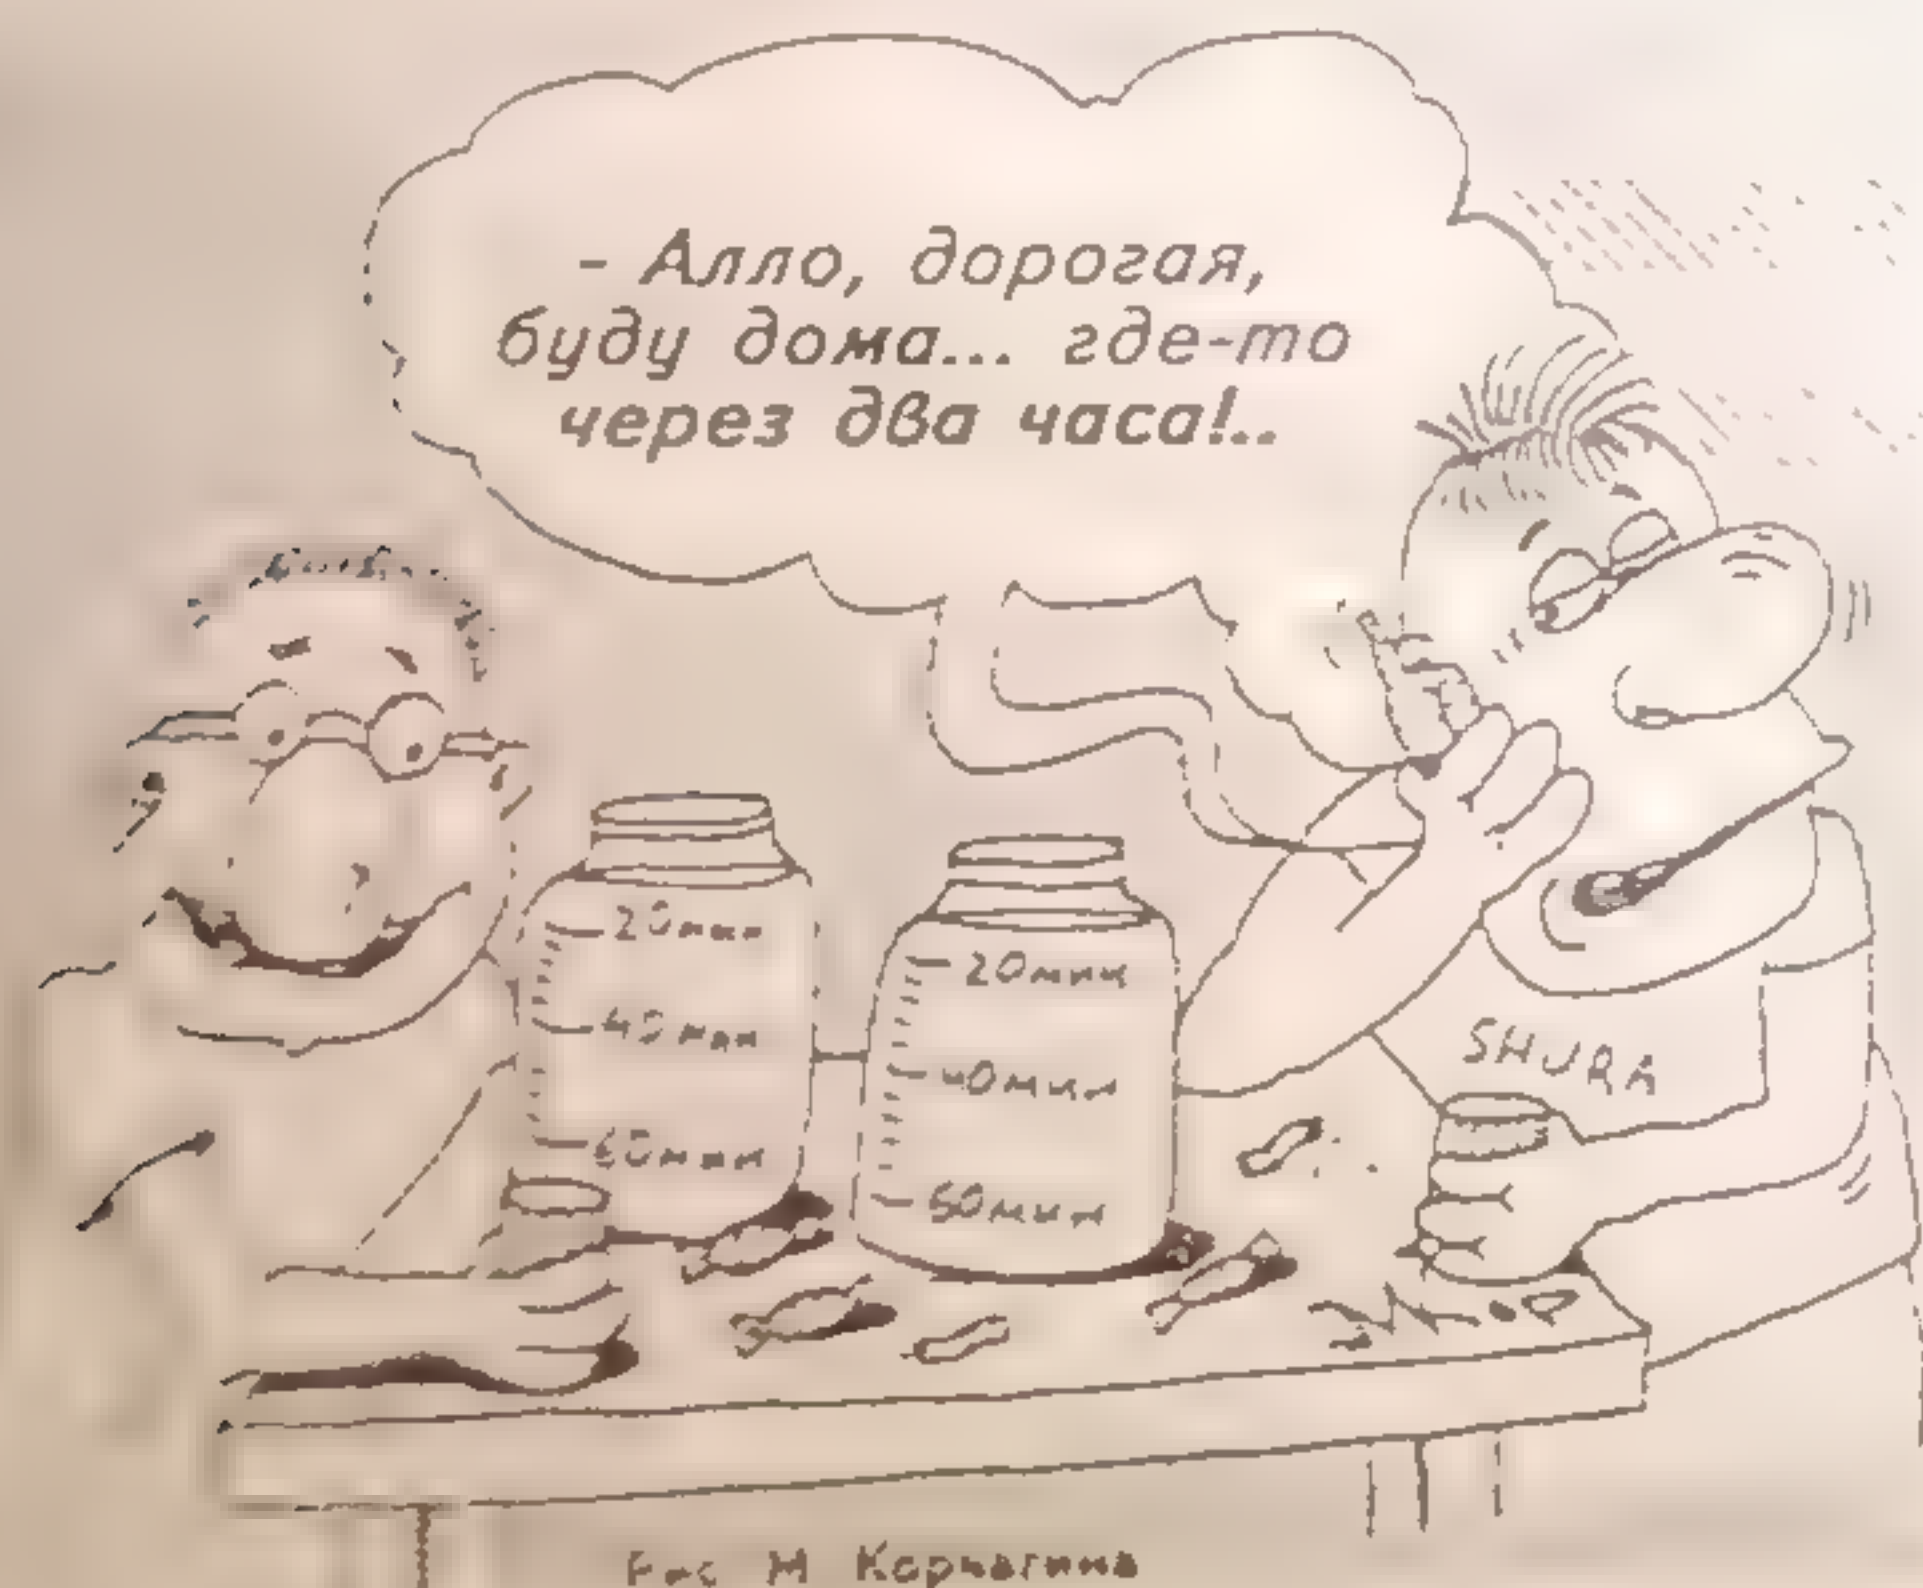 - Алло, дорогая,
буду дома... где-то
через два часа!..
20мин
40мин
60мин
20мин
40мин
60мин
SHURA
Рис М Корчагина